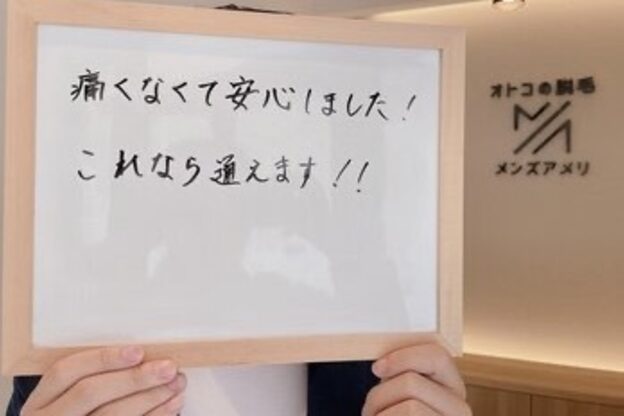 痛くなくて安心しました！
これなら通えます！！
オトコの脱毛
メンズアメリ